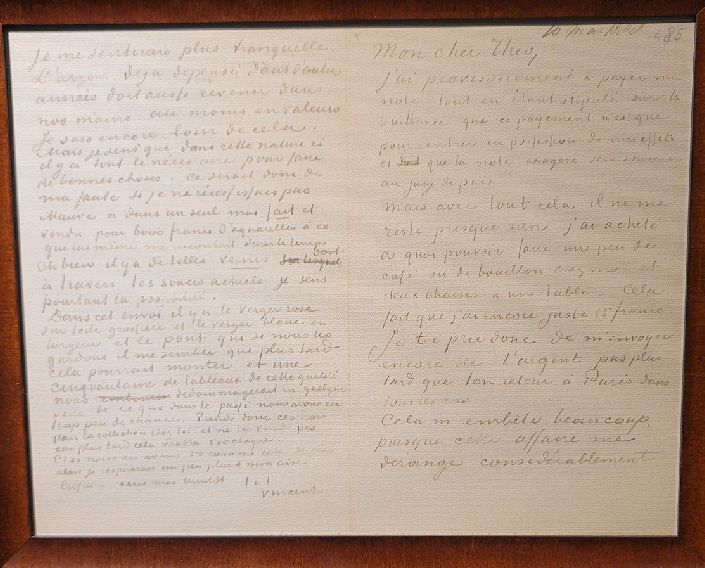 10 Mai 1888 485
Mon cher Theo,
j'ai provisoirement à payer ma
note tout en étant stipulé sur la
quittance que ce payement n'es que
pour rentrer en posession de mes effets
et que la note exagerée sera soumise
au juge de paix
Mais avec tout cela il ne me
reste presque rien j'ai achete
de quoi pouvoir faire une peu de
café ou de bouillon chez moi et
deux chaises & une table. Cela
fait que j'ai encore juste 15 francs
Je te prie donc de m'envoyer
encore de l'argent pas plus
tard que ton retour à Paris dans
tous les cas
Cela m'embête beaucoup
puisque cette affaire me
derange considérablement
Je me sentirais plus tranquille.
L'argent deja depensé dans d'autres
années doit aussi revenir dans
nos mains au moins en valeurs
Je suis encore loin de cela.
Mais je sens que dans cette nature ci
il y a tout le nécessaire pour faire
de bonnes choses. Ce serait donc de
ma faute si je ne réussissais pas
Mauve a dans un seul mois fait et
vendu pour 6000 francs d'aquarelles à ce
que toi même me racontait dans le temps
Eh bien il y a de telles veines dont
à travers les soucis actuels je sens
pourtant la possibilité.
Dans cet envoi il y a le verger rose
sur toile grossière et le verger blanc en
largeur et le pont qui si nous les
gardons il me semble que plus tard
cela pourrait monter et une
cinquantaine de tableaux de cette qualité
nous dédommagerait en quelque
de ce que dans le passé nous avons eu
trop peu de chance. Prends donc ces trois
pour ta collection chez toi et ne les vend pas
car plus tard cela vaudra 500 chaque.
Si si nous en avions 50 comme cela de côté
alors je respirerais un peu plus à mon aise
Enfin – écris moi bientôt t à t
Vincent